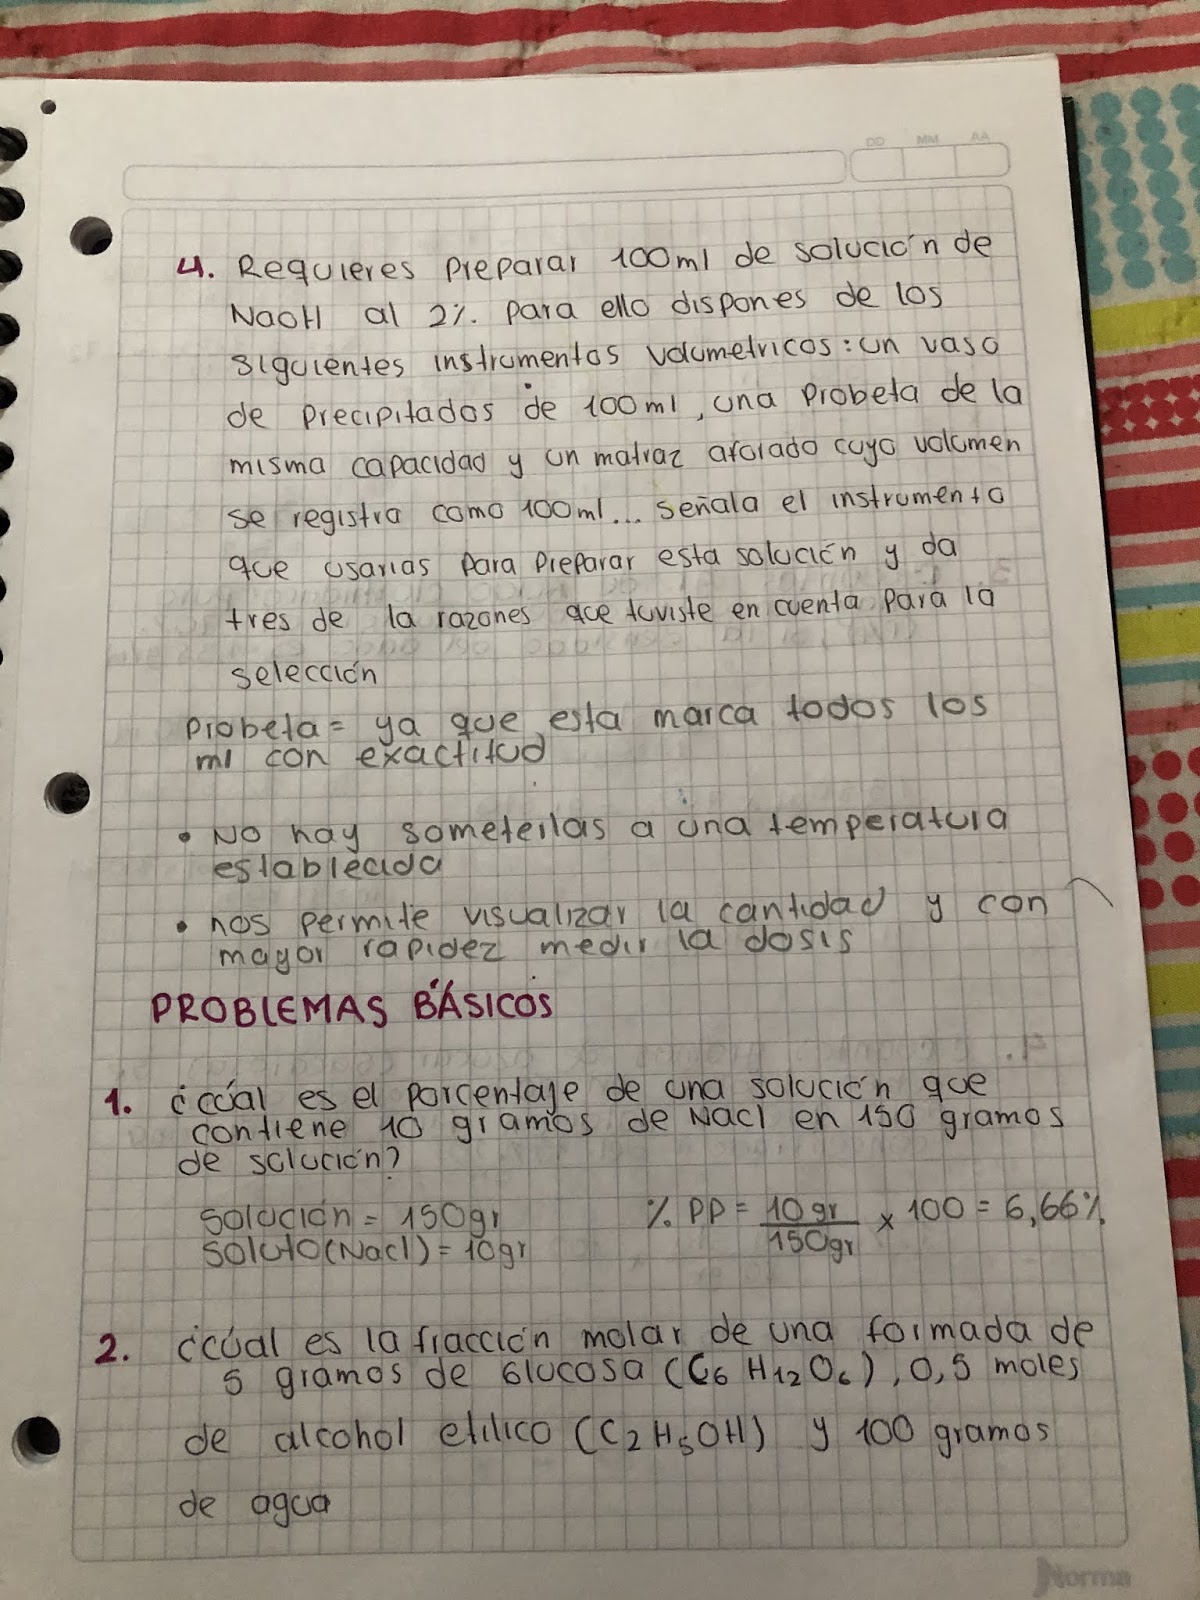 DD MM AA
4. Requieres preparar 100ml de solución de
NaOH al 2%. para ello dispones de los
siguientes instrumentos volumetricos: un vaso
de precipitados de 100ml, una probeta de la
misma capacidad y un matraz aforado cuyo volumen
se registra como 100ml... señala el instrumento
que usarias para preparar esta solución y da
tres de la razones que tuviste en cuenta para la
selección
probeta = ya que esta marca todos los
ml con exactitud
• No hay someterlas a una temperatura
establecida
• nos permite visualizar la cantidad y con
mayor rapidez medir la dosis
PROBLEMAS BÁSICOS
1. ¿cúal es el porcentaje de una solución que
contiene 10 gramos de Nacl en 150 gramos
de solución?
solución = 150gr
soluto(Nacl) = 10gr
% PP = 10gr / 150gr × 100 = 6,66%
2. ¿cúal es la fracción molar de una formada de
5 gramos de Glucosa (C6 H12 O6), 0,5 moles
de alcohol etilico (C2 H5OH) y 100 gramos
de agua
Norma